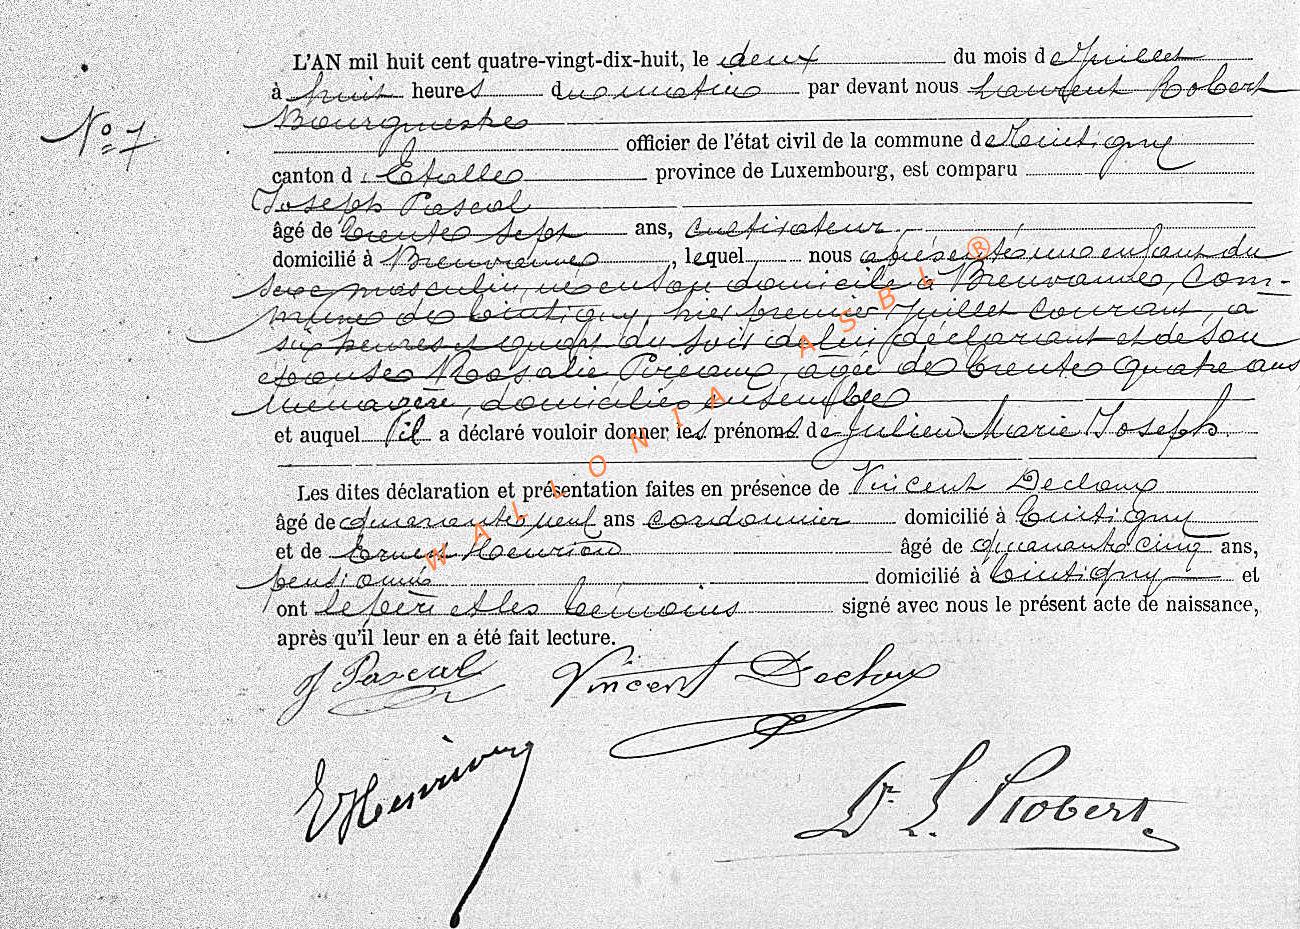 L'AN mil huit cent quatre-vingt-dix-huit, le deux du mois de Juillet
à huit heures du matin par devant nous Laurent Robert
N° 7
Bourgmestre
officier de l'état civil de la commune de Tintigny
canton d'Etalle province de Luxembourg, est comparu
Joseph Pascal
âgé de trente sept ans, cultivateur
domicilié à Breuvanne, lequel nous a présenté un enfant du
sexe masculin, né en son domicile à Breuvanne, com-
mune de Tintigny, hier premier Juillet courant, à
six heures et quart du soir de lui déclarant et de son
épouse Rosalie, agée de trente quatre ans
ménagère, domiciliés ensemble
et auquel il a déclaré vouloir donner les prénoms de Julien Marie Joseph
Les dites déclaration et présentation faites en présence de Vincent Decloux
âgé de quarante neuf ans cordonnier domicilié à Tintigny
et de Ernest Henrion âgé de quarante cinq ans,
pensionné domicilié à Tintigny et
ont le père et les témoins signé avec nous le présent acte de naissance,
après qu'il leur en a été fait lecture.
J Pascal Vincent Decloux
E Henrion
Dr. L. Robert
WALLONIA ASBL ®